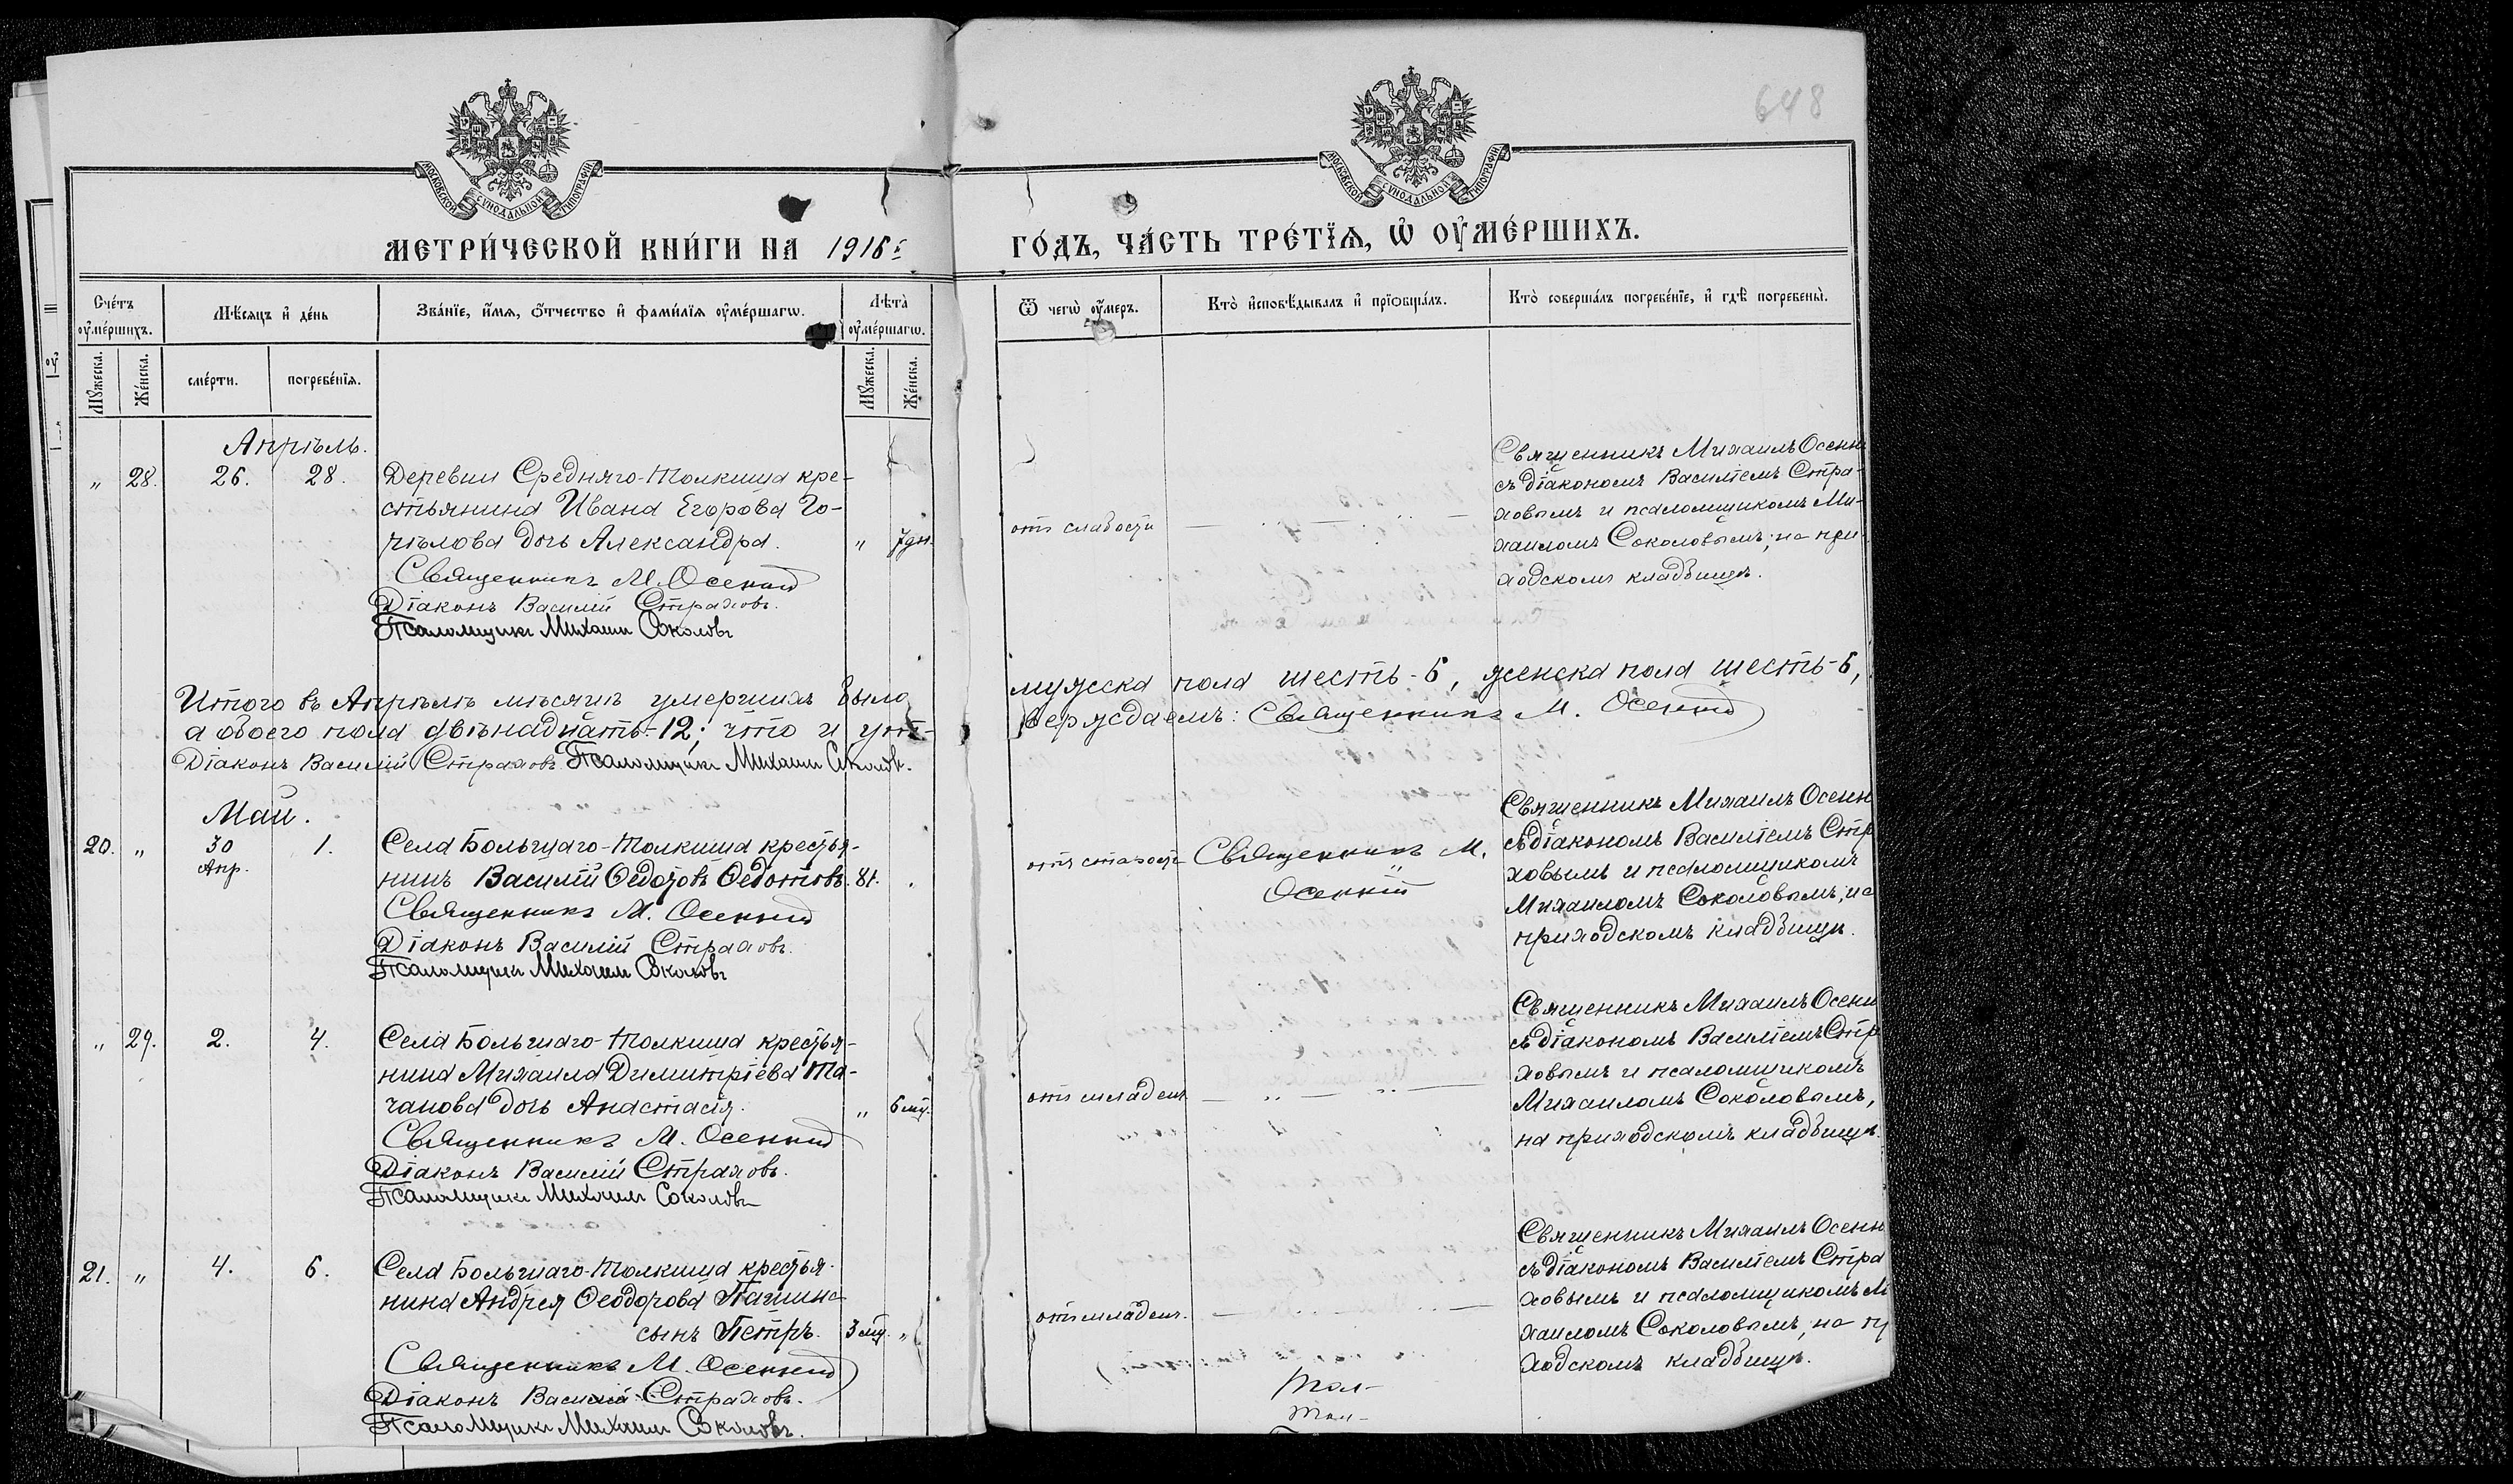 648
МОСКОВСКОЙ СУНОДАЛЬНОЙ ТИПОГРАФІИ
МОСКОВСКОЙ СУНОДАЛЬНОЙ ТИПОГРАФІИ
МЕТРИ́ЧЕСКОЙ КНИ́ГИ НА 1916 г.
ГО́ДЪ, ЧА́СТЬ ТРЕ́ТЇѦ, Ѡ ОУ҆МЕ́РШИХЪ.
Сче́тъ оу҆ме́ршихъ.
Мѣ́сяцъ и҆ де́нь
Зва́нїе, и҆́мѧ, ѻ҆́тчество и҆ фами́лїѧ оу҆ме́ршагѡ.
Лѣ́та оу҆ме́ршагѡ.
Ѿ чегѡ̀ оу҆́меръ.
Кто̀ и҆сповѣ́дывалъ и҆ прїѻбща́лъ.
Кто̀ соверша́лъ погребе́нїе, и҆ гдѣ̀ погребены̀.
Мꙋ́жеска.
Же́нска.
сме́рти.
погребе́нїѧ.
Мꙋ́жеска.
Же́нска.
Апрѣль.
" 28. 26. 28.
Деревни Средняго-Толкиша кре-
стьянина Ивана Егорова Го-
рѣлова дочь Александра. " 7 дн.
Священникъ М. Осенній
Діаконъ Василій Страховъ.
Псаломщикъ Михаилъ Соколовъ
отъ слабости
Священникъ Михаилъ Осенн
съ діакономъ Василіемъ Стра-
ховымъ и псаломщикомъ Ми-
хаиломъ Соколовымъ; на при-
ходскомъ кладбищѣ.
Итого въ Апрѣлѣ мѣсяцѣ умершихъ было
мужеска пола шесть-6, женска пола шесть-6,
а обоего пола двѣнадцать-12; что и ут-
верждаемъ: Священникъ М. Осенній
Діаконъ Василій Страховъ Псаломщикъ Михаилъ Соколовъ.
Май.
20. " 30 Апр. 1.
Села Большаго-Толкиша крестья-
нинъ Василій Ѳедотовъ Ѳедотовъ. 81.
Священникъ М. Осенній
Діаконъ Василій Страховъ.
Псаломщикъ Михаилъ Соколовъ
отъ старости
Священникъ М.
Осенній
Священникъ Михаилъ Осенн
съ діакономъ Василіемъ Стр
ховымъ и псаломщикомъ
Михаиломъ Соколовымъ; на
приходскомъ кладбищѣ.
" 29. 2. 4.
Села Большаго-Толкиша крестья-
нина Михаила Димитріева Та-
чанова дочь Анастасія. " 6 мц.
Священникъ М. Осенній
Діаконъ Василій Страховъ.
Псаломщикъ Михаилъ Соколовъ
отъ младенч.
Священникъ Михаилъ Осенн
съ діакономъ Василіемъ Стр
ховымъ и псаломщикомъ
Михаиломъ Соколовымъ,
на приходскомъ кладбищѣ.
21. " 4. 6.
Села Большаго-Толкиша крестья-
нина Андрея Ѳеодорова
сынъ Петръ. 3 мц. "
Священникъ М. Осенній
Діаконъ Василій Страховъ.
Псаломщикъ Михаилъ Соколовъ.
отъ младенч.
Священникъ Михаилъ Осенн
съ діакономъ Василіемъ Стра
ховымъ и псаломщикомъ Ми
хаиломъ Соколовымъ; на п
ходскомъ кладбищѣ.
Тол-